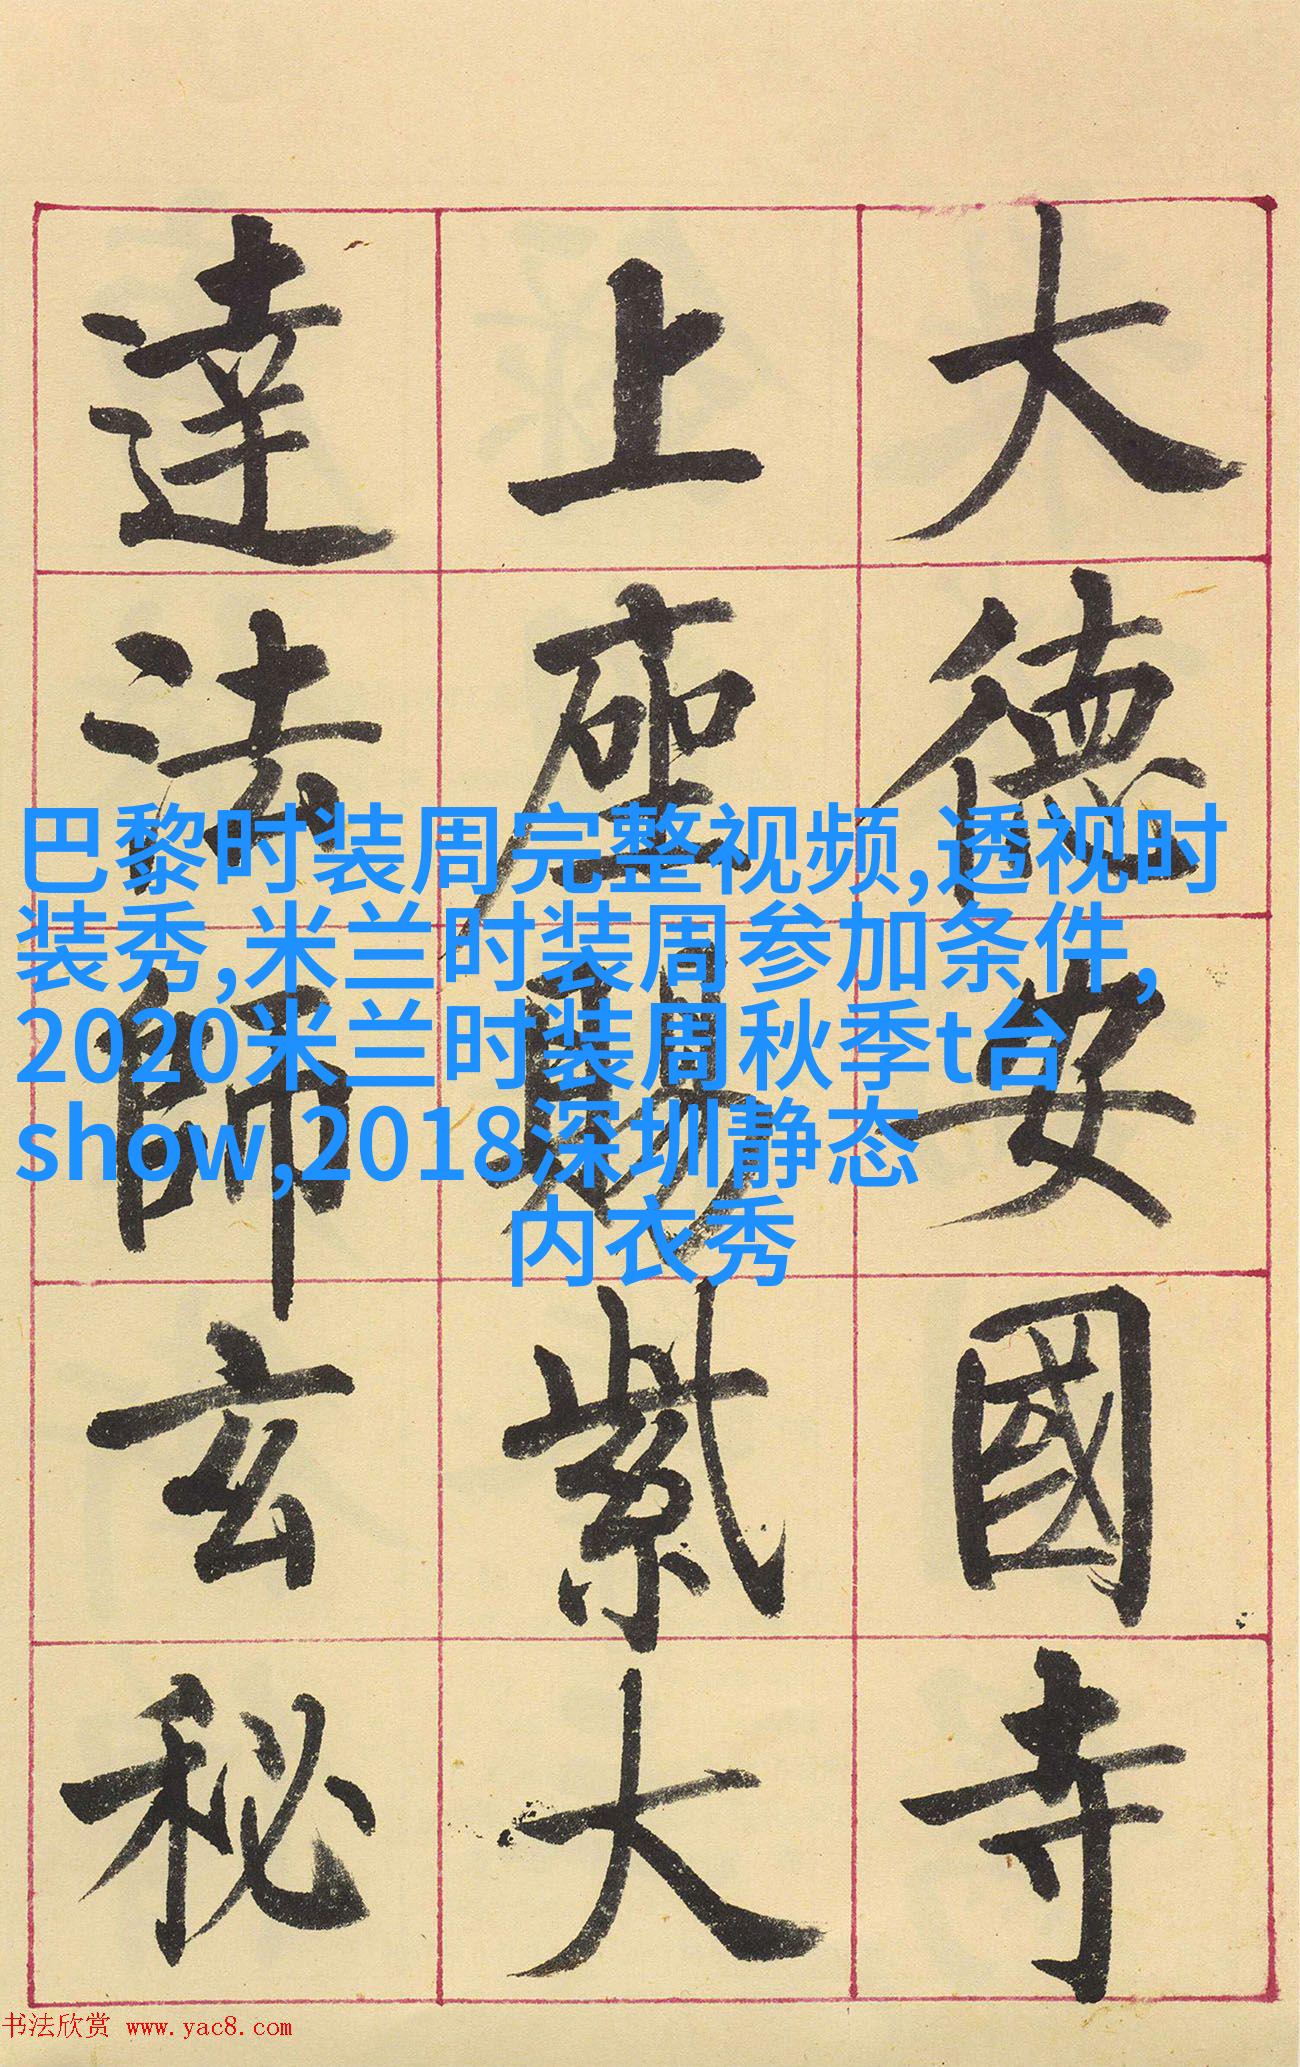 大德安國寺
上座賜紫大
達法師玄秘
巴黎时装周完整视频,透视时
装秀,米兰时装周参加条件,
2020米兰时装周秋季t台
show,2018深圳静态
内衣秀
书法欣赏 www.yac8.com